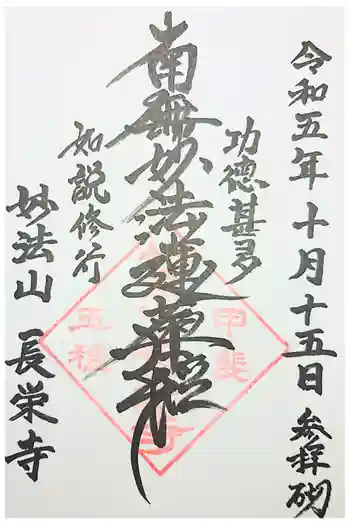 令和五年十月十五日 参拝砌
功徳甚多
南無妙法蓮華経
如説修行
妙法山 長栄寺
甲斐